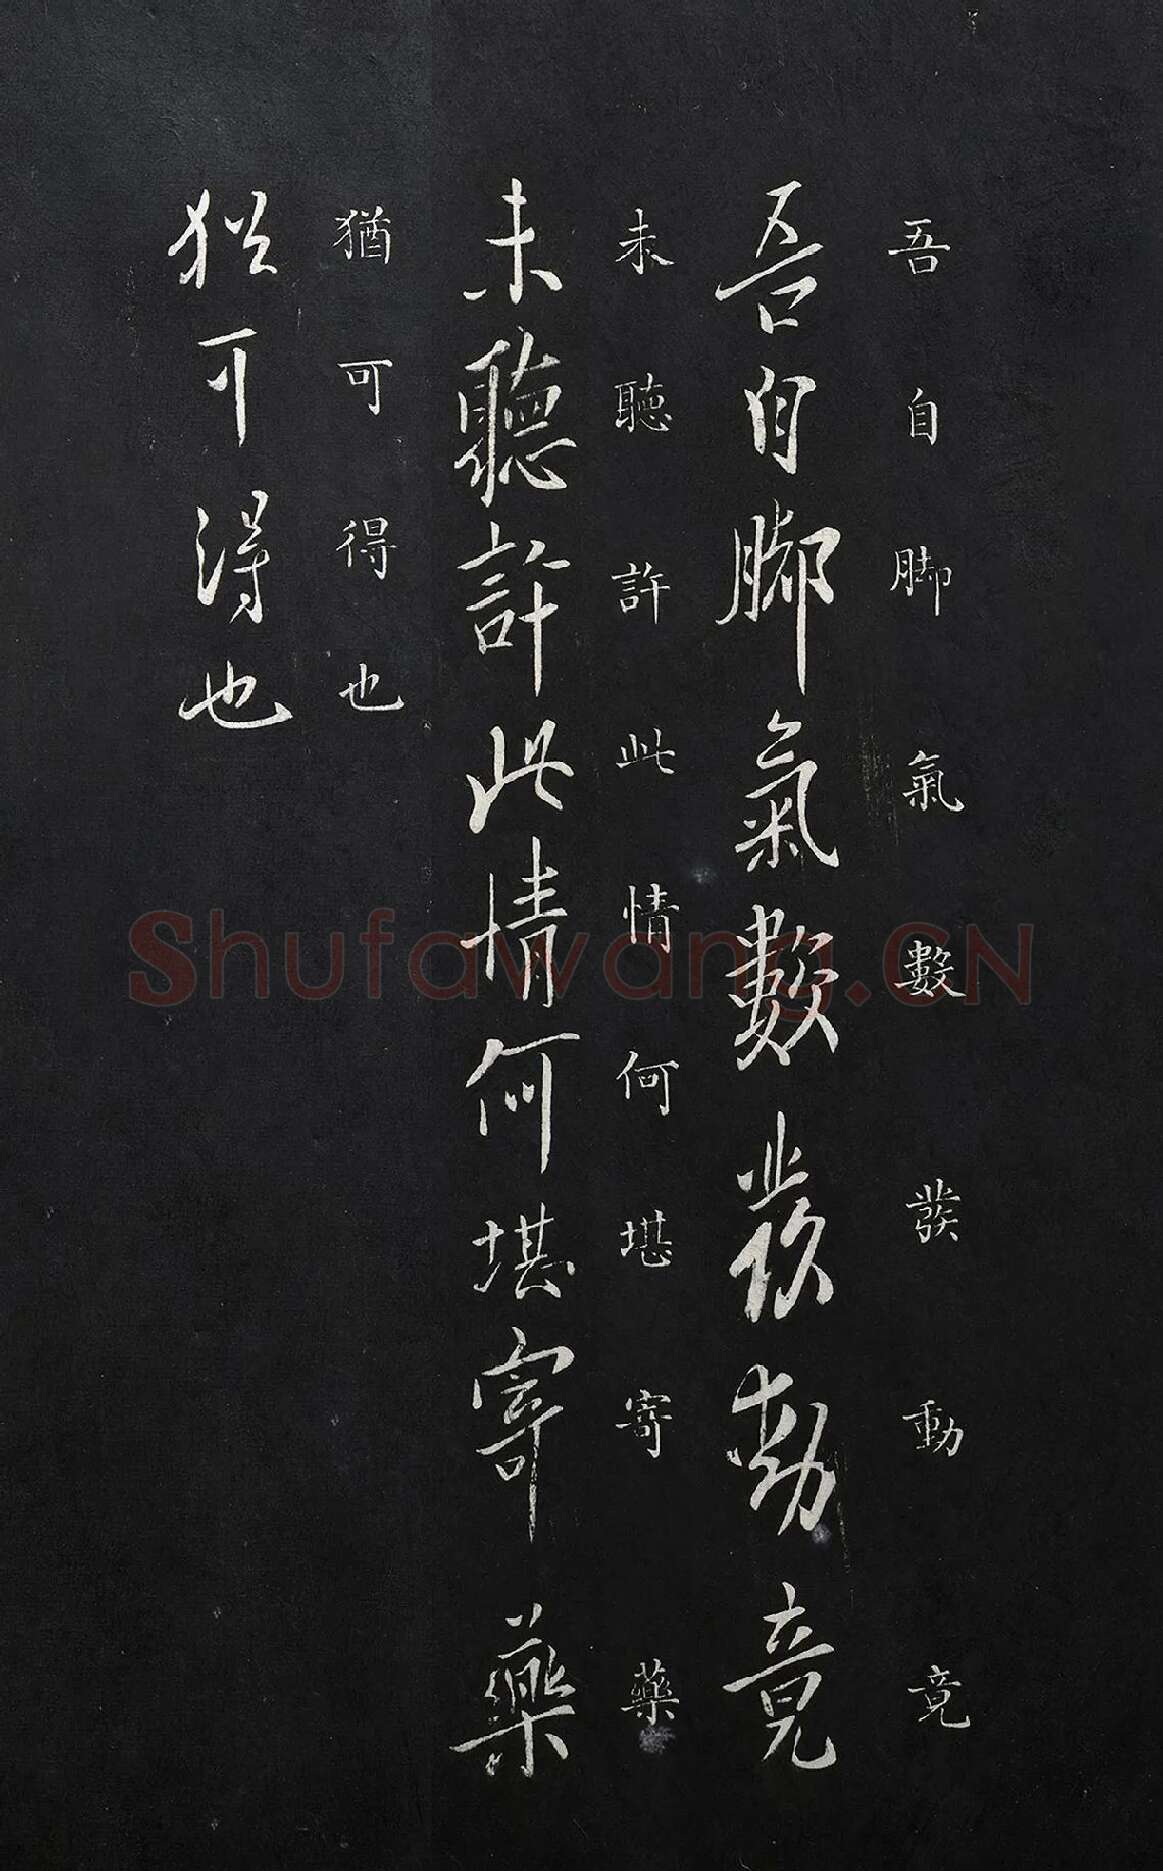 吾自脚氣數發動竟
吾自脚氣數發動竟
未聽許此情何堪寄藥
未聽許此情何堪寄藥
猶可得也
猶可得也
Shufawang.CN